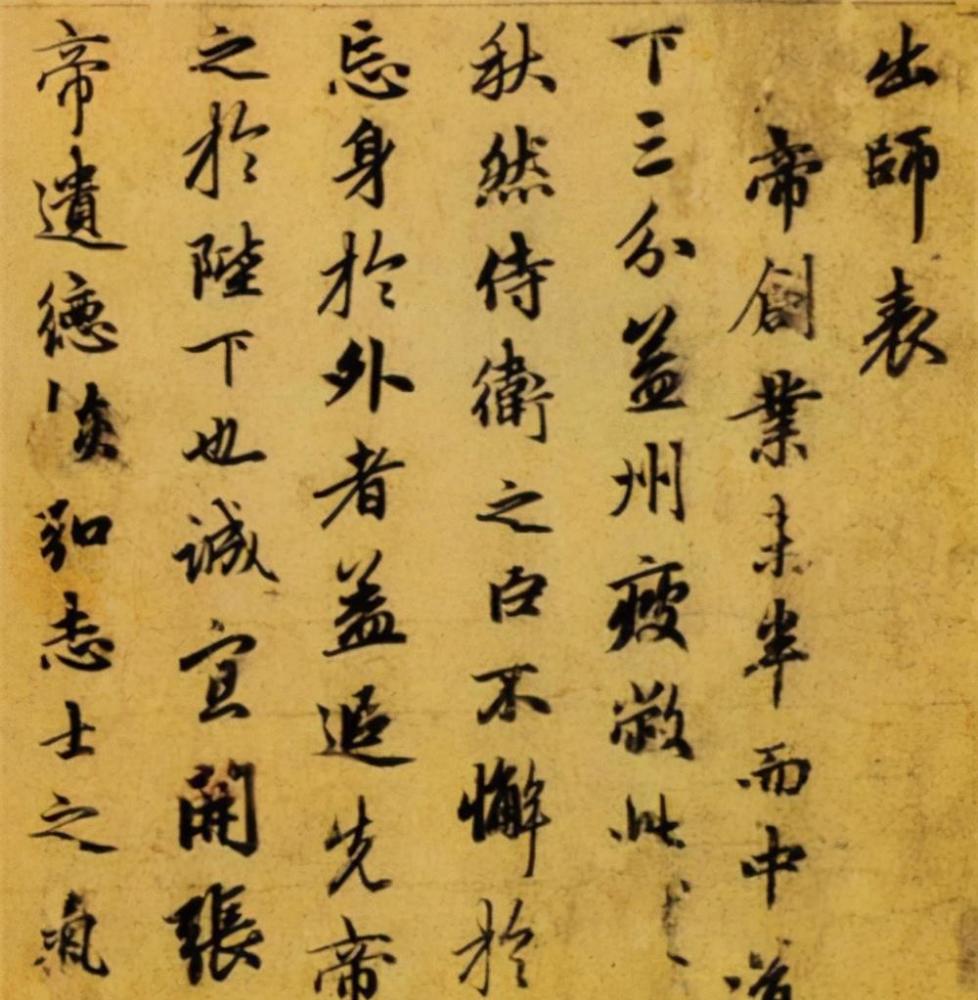 出師表
帝創業未半而中道
下三分益州疲敝此
秋然侍衛之臣不懈於
忘身於外者蓋追先帝
之於陛下也誠宜開張
帝遺德恢弘志士之氣